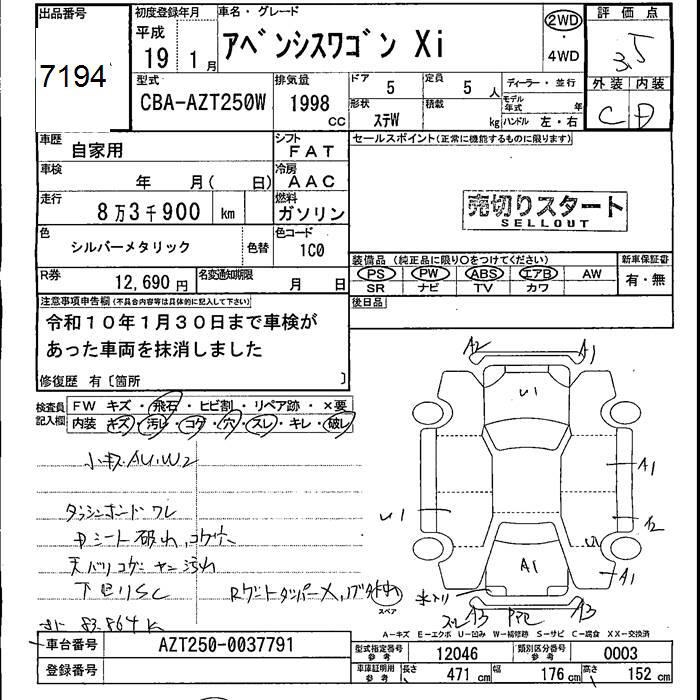 出品番号
7194
初度登録年月
平成
19 1月
車名・グレード
アベンシスワゴン Xi
2WD
・
4WD
評価点
3.5
外装 内装
C D
型式
CBA-AZT250W
排気量
1998
cc
ドア 5
定員 5 人
形状 ステW
積載 kg
ディーラー・並行
モデル年式 年
ハンドル 左・右
車歴
自家用
シフト
FAT
車検
年 月( 日)
冷房
AAC
走行
8万3千900 km
燃料
ガソリン
色
シルバーメタリック
色替
色コード
1C0
R券
12,690円
名変通知期限
月 日
セールスポイント(正常に機能するものに限ります)
売切りスタート
SELLOUT
装備品 (純正品に限り○をつけてください)
PS PW ABS エアB AW
SR ナビ TV カワ
新車保証書
有・無
後日品
注意事項申告欄(不具合内容等は具体的に記入して下さい)
令和10年1月30日まで車検が
あった車両を抹消しました
修復歴 有〔箇所 〕
検査員記入欄
FW キズ・飛石・ヒビ割・リペア跡・×要
内装 キズ・汚レ・コゲ・穴・スレ・キレ・破レ
小キズ AU.W2
ダッシュボード ワレ
Dシート 破れ、コゲ穴
天バリコゲ ヤニ汚れ
下回りSC
83,864K
A2 A1
U1
A1
U1
A1
A1
スペア
A3 A3
A-キズ E-エクボ U-凹み W-補修跡 S-サビ C-腐食 XX-交換済
車台番号
AZT250-0037791
登録番号
型式指定番号 参考
12046
類別区分番号 参考
0003
車庫証明用 参考
長さ 471 cm
幅 176 cm
高さ 152 cm